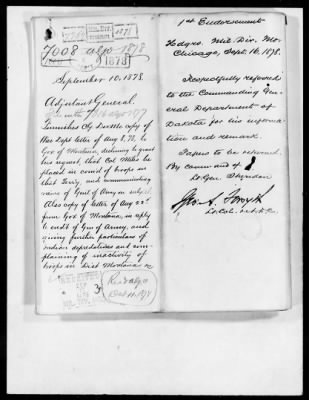 7008 ago 1878
1878
September 10, 1878.
Adjutant General.
furnishes copy of
War Dept letter of Aug 8, 78, to
Gov of Montana, declining to grant
his request, that Col Miles be
placed in comd of troops in
that Terry, and communicating
views of Genl of Army on subject.
Also copy of letter of Aug 22d
from Gov of Montana, in reply
to endt of Gen of Army, and
giving further particulars of
Indian depredations and com-
plaining of inactivity of
troops in Dist Montana
RECEIVED
3
1st Endorsement
Hdqrs. Mil. Div. Mo.
Chicago, Sept. 16, 1878.
Respectfully referred
to the Commanding Gen-
eral Department of
Dakota for his informa-
tion and remark.
Papers to be returned.
By Command of
Lt. Gen. Sheridan
Geo. A. Forsyth
Lt. Col.